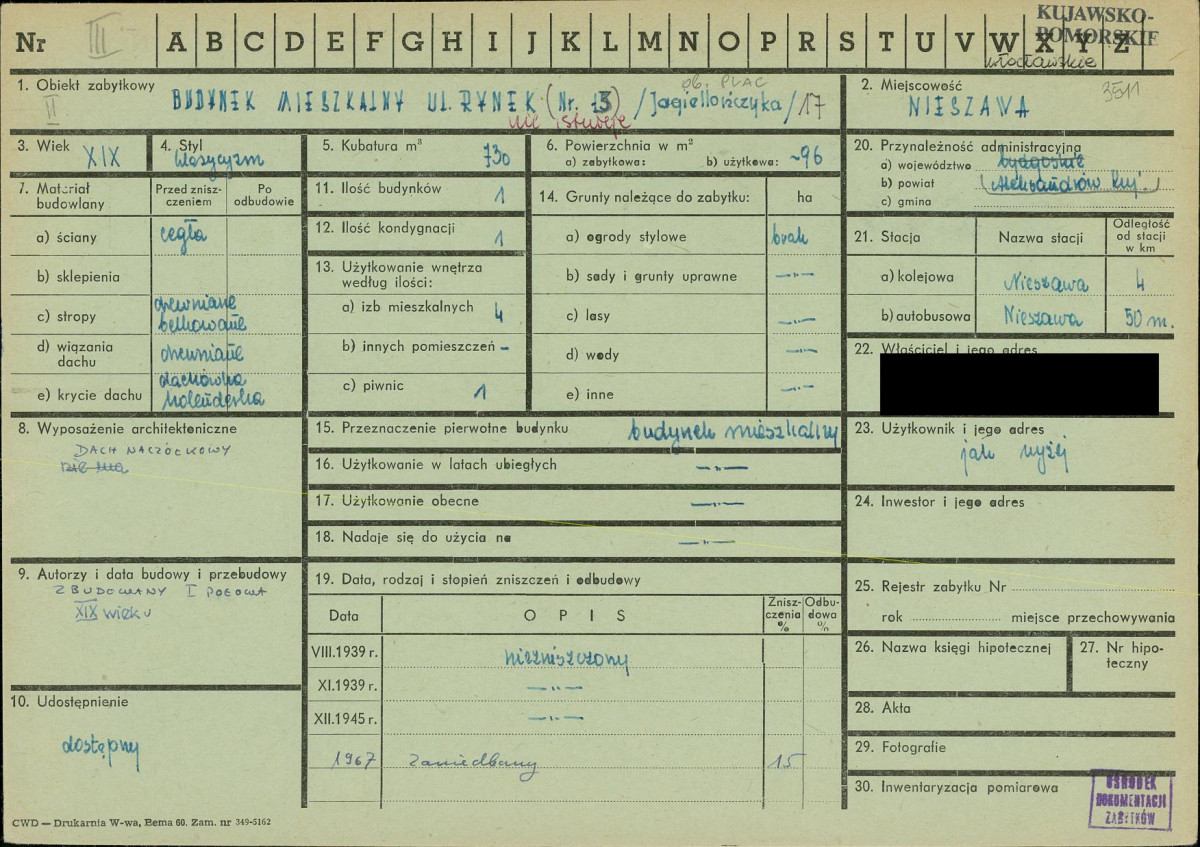 KUJAWSKO-
POMORSKIE
włocławskie
Nr III A B C D E F G H I J K L M N O P R S T U V W X Y Z
1. Obiekt zabytkowy
II
ob. PLAC
BUDYNEK MIESZKALNY UL. RYNEK (Nr. 13) /Jagiellończyka/ 17
nie istnieje
2. Miejscowość
3511
NIESZAWA
3. Wiek XIX
4. Styl
klasycyzm
5. Kubatura m³ 730
6. Powierzchnia w m²
a) zabytkowa: b) użytkowa: ~96
20. Przynależność administracyjna
a) województwo bydgoskie
b) powiat (Aleksandrów Kuj.)
c) gmina
7. Materiał budowlany
Przed zniszczeniem
Po odbudowie
a) ściany cegła
b) sklepienia
c) stropy drewniane
belkowane
d) wiązania dachu drewniane
e) krycie dachu dachówka
holenderka
11. Ilość budynków 1
12. Ilość kondygnacji 1
13. Użytkowanie wnętrza
według ilości:
a) izb mieszkalnych 4
b) innych pomieszczeń –
c) piwnic 1
14. Grunty należące do zabytku: ha
a) ogrody stylowe brak
b) sady i grunty uprawne —„—
c) lasy —„—
d) wody —„—
e) inne —„—
21. Stacja
Nazwa stacji
Odległość
od stacji
w km
a) kolejowa Nieszawa 4
b) autobusowa Nieszawa 50 m.
22. Właściciel i jego adres
8. Wyposażenie architektoniczne
DACH NACZÓŁKOWY
15. Przeznaczenie pierwotne budynku budynek mieszkalny
16. Użytkowanie w latach ubiegłych —„—
17. Użytkowanie obecne —„—
18. Nadaje się do użycia na —„—
23. Użytkownik i jego adres
jak wyżej
24. Inwestor i jego adres
9. Autorzy i data budowy i przebudowy
ZBUDOWANY I POŁOWA
XIX wieku
10. Udostępnienie
dostępny
19. Data, rodzaj i stopień zniszczeń i odbudowy
Data OPIS Zniszczenia % Odbudowa %
VIII.1939 r. niezniszczony
XI.1939 r. —„—
XII.1945 r. —„—
1967 zaniedbany 15
25. Rejestr zabytku Nr
rok miejsce przechowywania
26. Nazwa księgi hipotecznej
27. Nr hipoteczny
28. Akta
29. Fotografie
30. Inwentaryzacja pomiarowa
OŚRODEK
DOKUMENTACJI
ZABYTKÓW
CWD — Drukarnia W-wa, Bema 60. Zam. nr 349-5162